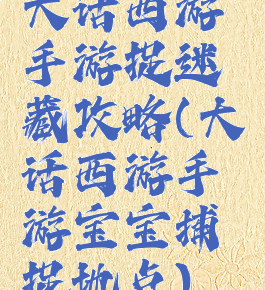 大话西游
手游捉迷
藏攻略(大
话西游手
游宝宝捕
捉地点)